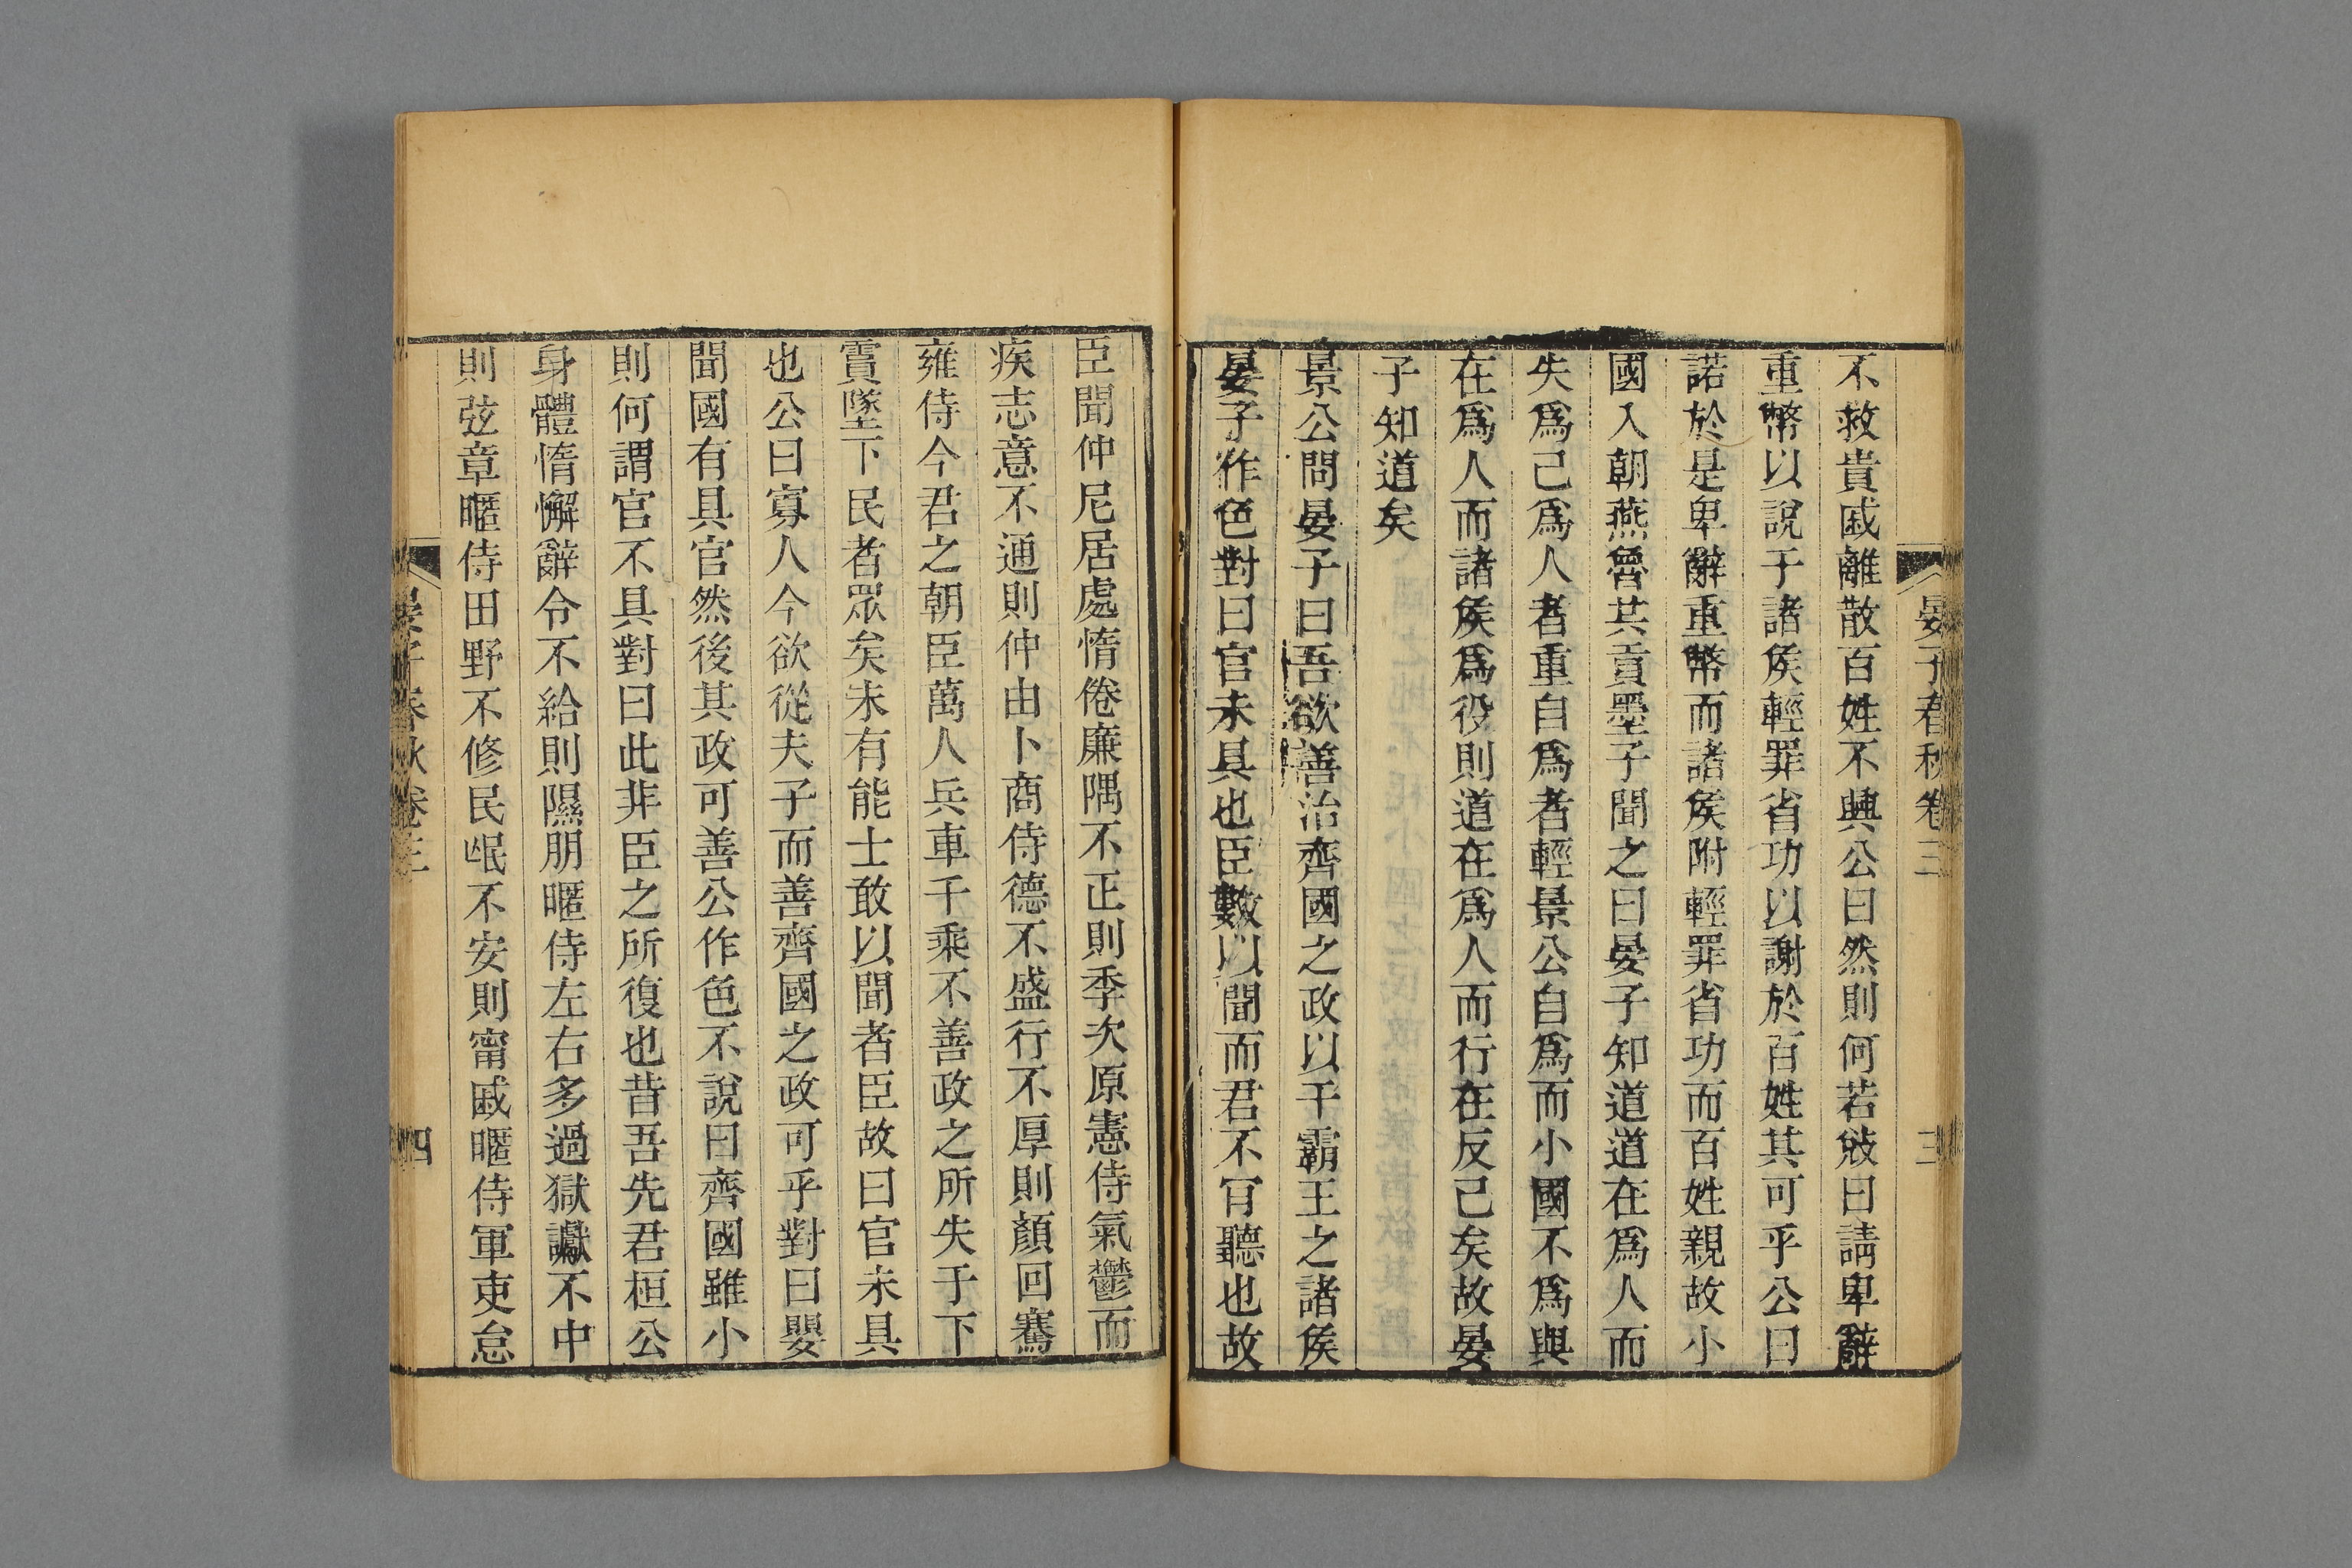 晏子春秋卷三
三
不救貴戚離散百姓不興公曰然則何若敓曰請卑辭
重幣以說于諸侯輕罪省功以謝於百姓其可乎公曰
諾於是卑辭重幣而諸侯附輕罪省功而百姓親故小
國入朝燕魯共貢墨子聞之曰晏子知道道在爲人而
失爲己爲人者重自爲者輕景公自爲而小國不爲與
在爲人而諸侯爲役則道在爲人而行在反己矣故晏
子知道矣
景公問晏子曰吾欲善治齊國之政以干霸王之諸侯
晏子作色對曰官未具也臣數以聞而君不肯聽也故
臣聞仲尼居處惰倦廉隅不正則季次原憲侍氣鬱而
疾志意不通則仲由卜商侍德不盛行不厚則顏回騫
雍侍今君之朝臣萬人兵車千乘不善政之所失于下
霣墜下民者眾矣未有能士敢以聞者臣故曰官未具
也公曰寡人今欲從夫子而善齊國之政可乎對曰嬰
聞國有具官然後其政可善公作色不說曰齊國雖小
則何謂官不具對曰此非臣之所復也昔吾先君桓公
身體惰懈辭令不給則隰朋暱侍左右多過獄讞不中
則弦章暱侍田野不修民氓不安則甯戚暱侍軍吏怠
晏子春秋卷三
四